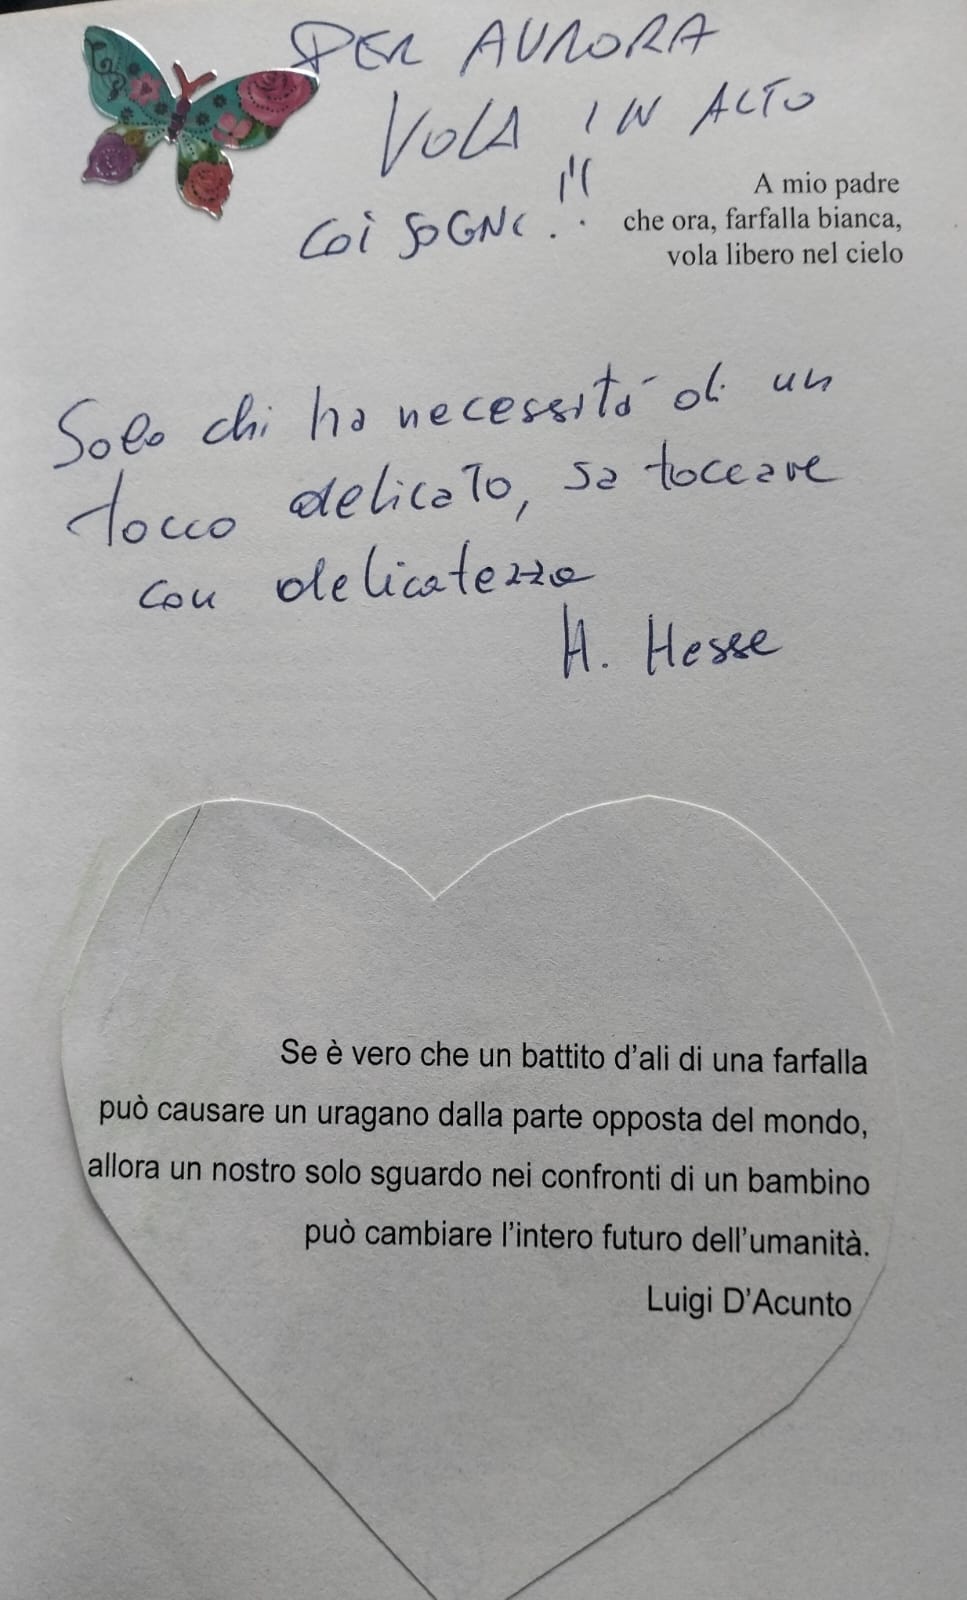 PER AURORA
VOLA IN ALTO
COI SOGNI..!!!
A mio padre
che ora, farfalla bianca,
vola libero nel cielo
Solo chi ha necessità di un
tocco delicato, sa toccare
con delicatezza
H. Hesse
Se è vero che un battito d'ali di una farfalla
può causare un uragano dalla parte opposta del mondo,
allora un nostro solo sguardo nei confronti di un bambino
può cambiare l'intero futuro dell'umanità.
Luigi D'Acunto